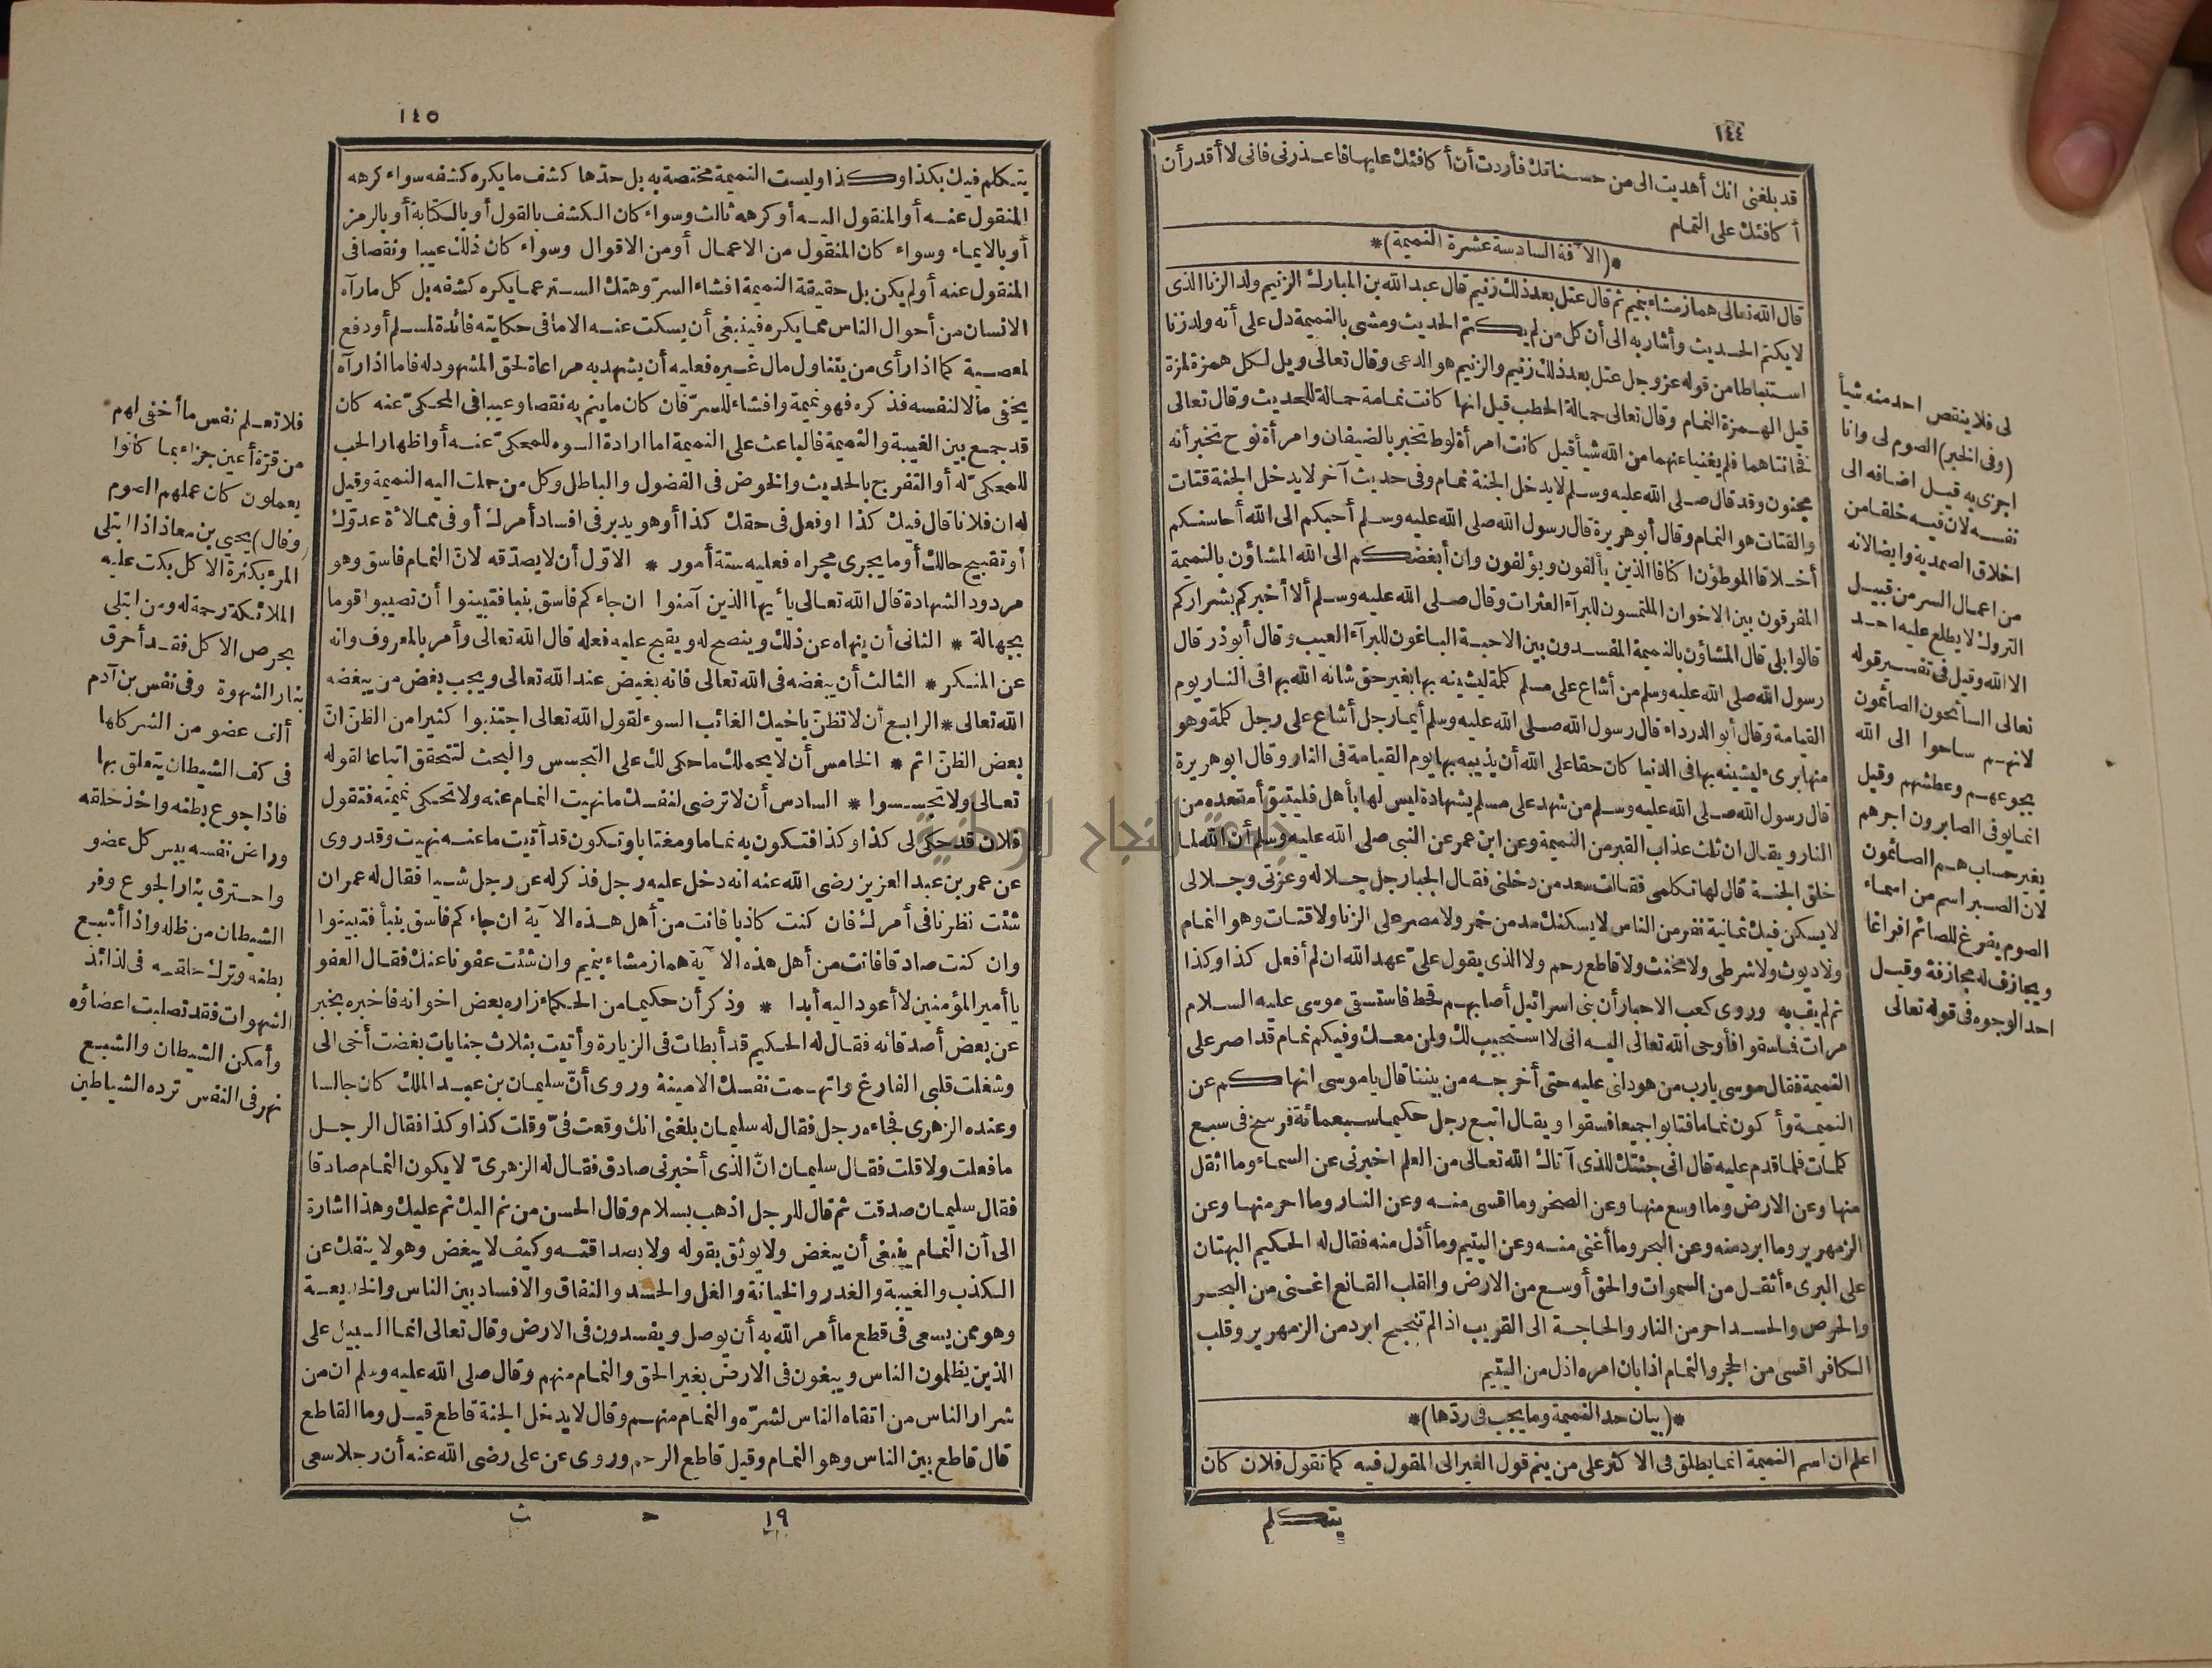 ١٤٤
قد بلغنى انك أهديت الى من حسناتك فأردت أن أكافئك عليها فاعذرنى فانى لا أقدر أن
أكافئك على التمام
*(الآفة السادسة عشرة النميمة)*
قال الله تعالى هماز مشاء بنميم ثم قال عتل بعد ذلك زنيم قال عبد الله بن المبارك الزنيم ولد الزنا الذى
لا يكتم الحديث وأشار به الى أن كل من لم يكتم الحديث ومشى بالنميمة دل على أنه ولد زنا
استنباطا من قوله عز وجل عتل بعد ذلك زنيم والزنيم هو الدعى وقال تعالى ويل لكل همزة لمزة
قيل الهمزة النمام وقال تعالى حمالة الحطب قيل انها كانت نمامة حمالة للحديث وقال تعالى
فخانتاهما فلم يغنيا عنهما من الله شيأ قيل كانت امرأة لوط تخبر بالضيفان وامرأة نوح تخبر أنه
مجنون وقد قال صلى الله عليه وسلم لا يدخل الجنة نمام وفى حديث آخر لا يدخل الجنة قتات
والقتات هو النمام وقال أبو هريرة قال رسول الله صلى الله عليه وسلم أحبكم الى الله أحاسنكم
أخلاقا الموطؤن اكنافا الذين يألفون ويؤلفون وان أبغضكم الى الله المشاؤن بالنميمة
المفرقون بين الاخوان الملتمسون للبرآء العثرات وقال صلى الله عليه وسلم ألا أخبركم بشراركم
قالوا بلى قال المشاؤن بالنميمة المفسدون بين الاحبة الباغون للبرآء العيب وقال أبوذر قال
رسول الله صلى الله عليه وسلم من أشاع على مسلم كلمة ليشينه بها بغير حق شانه الله بها فى النار يوم
القيامة وقال أبو الدرداء قال رسول الله صلى الله عليه وسلم أيما رجل أشاع على رجل كلمة وهو
منها برىء ليشينه بها فى الدنيا كان حقا على الله أن يذيبه بها يوم القيامة فى النار وقال ابو هريرة
قال رسول الله صلى الله عليه وسلم من شهد على مسلم بشهادة ليس لها بأهل فليتبوّأ مقعده من
النار ويقال ان ثلث عذاب القبر من النميمة وعن ابن عمر عن النبى صلى الله عليه وسلم أن الله لما
خلق الجنة قال لها تكلمى فقالت سعد من دخلنى فقال الجبار جل جلاله وعزتى وجلالى
لا يسكن فيك ثمانية نفر من الناس لا يسكنك مدمن خمر ولا مصر على الزنا ولا قتات وهو النمام
ولا ديوث ولا شرطى ولا مخنث ولا قاطع رحم ولا الذى يقول علىّ عهد الله ان لم أفعل كذا وكذا
ثم لم يف به وروى كعب الاحبار أن بنى اسرائيل أصابهم قحط فاستسقى موسى عليه السلام
مرات فاسقوا فأوحى الله تعالى اليه انى لا استجيب لك ولمن معك وفيكم نمام قد اصر على
النميمة فقال موسى يا رب من هو دلنى عليه حتى أخرجه من بيننا قال يا موسى انهاكم عن
النميمة وأكون نماما فتابوا جميعا فسقوا ويقال اتبع رجل حكيما سبعمائة فرسخ فى سبع
كلمات فلما قدم عليه قال انى جئتك للذى آتاك الله تعالى من العلم اخبرنى عن السماء وما اثقل
منها وعن الارض وما اوسع منها وعن الصخر وما اقسى منه وعن النار وما احر منها وعن
الزمهرير وما ابرد منه وعن البحر وما أغنى منه وعن اليتيم وما أذل منه فقال له الحكيم البهتان
على البرىء أثقل من السموات والحق أوسع من الارض والقلب القانع اغنى من البحر
والحرص والحسد احر من النار والحاجة الى القريب اذا لم تنجح ابرد من الزمهرير وقلب
الكافر اقسى من الحجر والنمام اذا بان امره اذل من اليتيم
*(بيان حد النميمة وما يجب فى ردّها)*
اعلم ان اسم النميمة انما يطلق فى الاكثر على من ينم قول الغير الى المقول فيه كما تقول فلان كان
يتكلم
لى فلا ينقص احد منه شيأ
(وفى الخبر) الصوم لى وانا
اجزى به قيل اضافه الى
نفسه لان فيه خلقا من
اخلاق الصمدية وايضا لانه
من اعمال السر من قبيل
التروك لا يطلع عليه احد
الا الله وقيل فى تفسير قوله
تعالى السائحون الصائمون
لانهم ساحوا الى الله
بجوعهم وعطشهم وقيل
انما يوفى الصابرون اجرهم
بغير حساب هم الصائمون
لان الصبر اسم من اسماء
الصوم يفرغ للصائم افراغا
ويجازف له مجازفة وقيل
احد الوجوه فى قوله تعالى
١٤٥
يتكلم فيك بكذا وكذا وليست النميمة مختصة به بل حدّها كشف ما يكره كشفه سواء كرهه
المنقول عنه أو المنقول اليه أو كرهه ثالث وسواء كان الكشف بالقول أو بالكتابة أو بالرمز
أو بالايماء وسواء كان المنقول من الاعمال أو من الاقوال وسواء كان ذلك عيبا ونقصا فى
المنقول عنه أو لم يكن بل حقيقة النميمة افشاء السرّ وهتك الستر عما يكره كشفه بل كل ما رآه
الانسان من أحوال الناس مما يكره فينبغى أن يسكت عنه الا ما فى حكايته فائدة لمسلم أو دفع
لمعصية كما اذا رأى من يتناول مال غيره فعليه أن يشهد به مراعاة لحق المشهود له فاما اذا رآه
يخفى مالا لنفسه فذكره فهو نميمة وافشاء للسرّ فان كان ما ينم به نقصا وعيبا فى المحكىّ عنه كان
قد جمع بين الغيبة والنميمة فالباعث على النميمة اما ارادة السوء للمحكىّ عنه أو اظهار الحب
للمحكىّ له أو التفرج بالحديث والخوض فى الفضول والباطل وكل من حملت اليه النميمة وقيل
له ان فلانا قال فيك كذا او فعل فى حقك كذا أو هو يدبر فى افساد أمرك أو فى ممالأة عدوّك
أو تقبيح حالك أو ما يجرى مجراه فعليه ستة أمور * الاوّل أن لا يصدّقه لانّ النمام فاسق وهو
مردود الشهادة قال الله تعالى يأيها الذين آمنوا ان جاءكم فاسق بنبا فتبينوا أن تصيبوا قوما
بجهالة * الثانى أن ينهاه عن ذلك وينصح له ويقبح عليه فعله قال الله تعالى وأمر بالمعروف وانه
عن المنكر * الثالث أن يبغضه فى الله تعالى فانه بغيض عند الله تعالى ويجب بغض من يبغضه
الله تعالى * الرابع أن لا تظنّ باخيك الغائب السوء لقول الله تعالى اجتنبوا كثيرا من الظنّ انّ
بعض الظنّ اثم * الخامس أن لا يحملك ما حكى لك على التجسس والبحث لتتحقق اتباعا لقوله
تعالى ولا تجسسوا * السادس أن لا ترضى لنفسك ما نهيت النمام عنه ولا تحكى نميمته فتقول
فلان قد حكى لى كذا وكذا فتكون به نماما ومغتابا وتكون قد أتيت ما عنه نهيت وقد روى
عن عمر بن عبد العزيز رضى الله عنه انه دخل عليه رجل فذكر له عن رجل شيا فقال له عمر ان
شئت نظرنا فى أمرك فان كنت كاذبا فانت من أهل هذه الآية ان جاءكم فاسق بنبأ فتبينوا
وان كنت صادقا فانت من أهل هذه الآية هماز مشاء بنميم وان شئت عفونا عنك فقال العفو
يا أمير المؤمنين لا أعود اليه أبدا * وذكر أن حكيما من الحكماء زاره بعض اخوانه فاخبره بخبر
عن بعض أصدقائه فقال له الحكيم قد أبطات فى الزيارة وأتيت بثلاث جنايات بغضت أخى الى
وشغلت قلبى الفارغ واتهمت نفسك الامينة وروى أنّ سليمان بن عبد الملك كان جالسا
وعنده الزهرى فجاءه رجل فقال له سليمان بلغنى انك وقعت فىّ وقلت كذا وكذا فقال الرجل
ما فعلت ولا قلت فقال سليمان انّ الذى أخبرنى صادق فقال له الزهرىّ لا يكون النمام صادقا
فقال سليمان صدقت ثم قال للرجل اذهب بسلام وقال الحسن من نم اليك نم عليك وهذا اشارة
الى أن النمام ينبغى أن يبغض ولا يوثق بقوله ولا بصداقته وكيف لا يبغض وهو لا ينفك عن
الكذب والغيبة والغدر والخيانة والغل والحسد والنفاق والافساد بين الناس والخديعة
وهو ممن يسعى فى قطع ما أمر الله به أن يوصل ويفسدون فى الارض وقال تعالى انما السبيل على
الذين يظلمون الناس ويبغون فى الارض بغير الحق والنمام منهم وقال صلى الله عليه وسلم ان من
شرار الناس من اتقاه الناس لشرّه والنمام منهم وقال لا يدخل الجنة قاطع قيل وما القاطع
قال قاطع بين الناس وهو النمام وقيل قاطع الرحم وروى عن على رضى الله عنه أن رجلا سعى
١٩ ح ث
فلا تعلم نفس ما أخفى لهم
من قرّة أعين جزاء بما كانوا
يعملون كان عملهم الصوم
(وقال) يحيى بن معاذ اذا ابتلى
المرء بكثرة الاكل بكت عليه
الملائكة رحمة له ومن ابتلى
بحرص الاكل فقد أحرق
بنار الشهوة وفى نفس بن آدم
ألف عضو من الشر كلها
فى كف الشيطان يتعلق بها
فاذا جوع بطنه واخذ حلقه
وراض نفسه يبس كل عضو
واحترق بنار الجوع وفر
الشيطان من ظله واذا أشبع
بطنه وترك حلقه فى لذائذ
الشهوات فقد تصلبت اعضاؤه
وأمكن الشيطان والشبع
نهر فى النفس ترده الشياطين